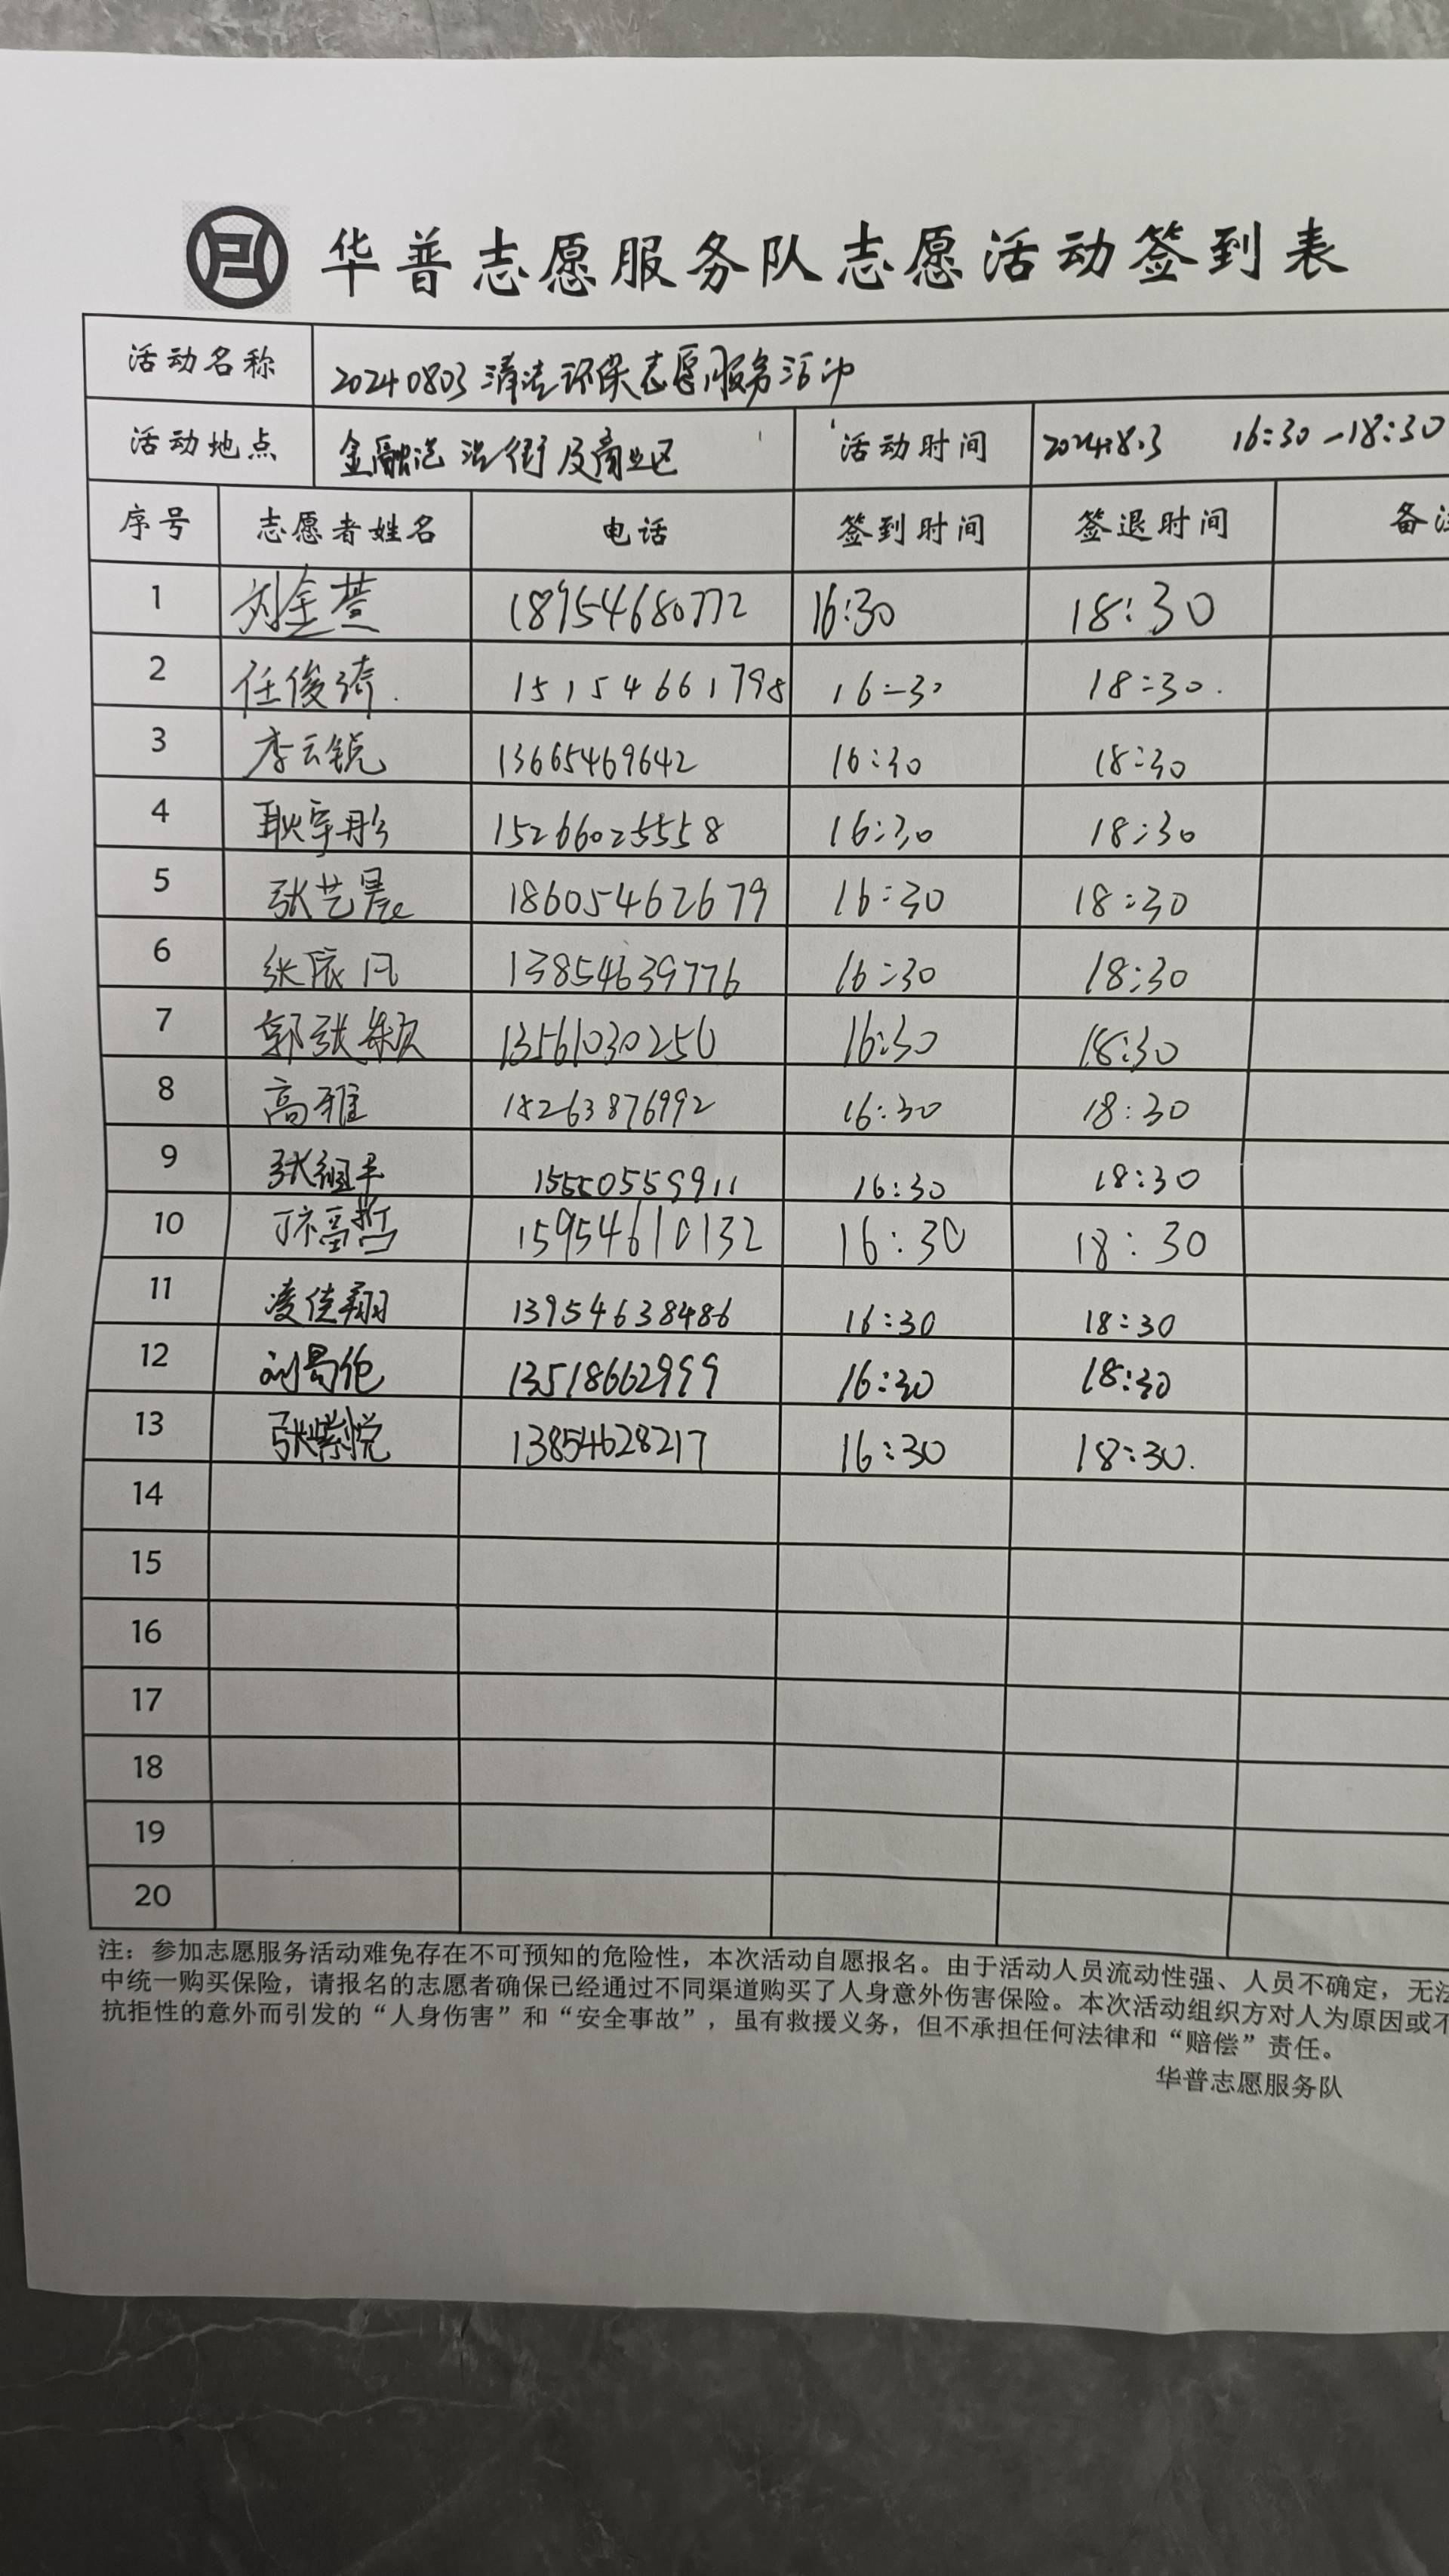 华普志愿服务队志愿活动签到表
活动名称 20240803 清洁环保志愿服务活动
活动地点 金融港 沿街及商业区 活动时间 2024.8.3 16:30-18:30
序号 志愿者姓名 电话 签到时间 签退时间 备
1 刘金萱 18954680772 16:30 18:30
2 任俊琦 15154661798 16:30 18:30.
3 李云锐 13665469642 16:30 18:30
4 耿宇彤 15266025558 16:30 18:30
5 张艺晨 18605462679 16:30 18:30
6 张宸 13854639776 16:30 18:30
7 郭张 13561030250 16:30 18:30
8 高雅 18263876992 16:30 18:30
9 张祖平 15550559911 16:30 18:30
10 15954610132 16:30 18:30
11 凌佳翔 13954638486 16:30 18:30
12 刘昌伦 13518662999 16:30 18:30
13 张紫悦 13854628217 16:30 18:30.
14
15
16
17
18
19
20
注：参加志愿服务活动难免存在不可预知的危险性，本次活动自愿报名。由于活动人员流动性强、人员不确定，无法
中统一购买保险，请报名的志愿者确保已经通过不同渠道购买了人身意外伤害保险。本次活动组织方对人为原因或不
抗拒性的意外而引发的“人身伤害”和“安全事故”，虽有救援义务，但不承担任何法律和“赔偿”责任。
华普志愿服务队